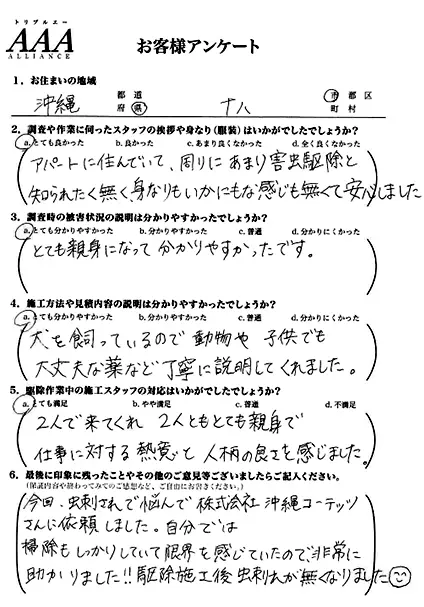 トリプルエー
AAA
ALLIANCE
お客様アンケート
1. お住まいの地域
沖縄 都道府県 ナハ 市郡区町村
2. 調査や作業に伺ったスタッフの挨拶や身なり(服装)はいかがでしたでしょうか?
a.とても良かった b.良かった c.あまり良くなかった d.全く良くなかった
アパートに住んでいて、周りにあまり害虫駆除と
知られたく無く、身なりもいかにもな感じも無くて安心しました
3. 調査時の被害状況の説明は分かりやすかったでしょうか?
a.とても分かりやすかった b.分かりやすかった c.普通 d.分かりにくかった
とても親身になって分かりやすかったです。
4. 施工方法や見積内容の説明は分かりやすかったでしょうか?
a.とても分かりやすかった b.分かりやすかった c.普通 d.分かりにくかった
犬を飼っているので動物や子供でも
大丈夫な薬など丁寧に説明してくれました。
5. 駆除作業中の施工スタッフの対応はいかがでしたでしょうか?
a.とても満足 b.やや満足 c.普通 d.不満足
2人で来てくれ 2人ともとても親身で
仕事に対する熱意と人柄の良さを感じました。
6. 最後に印象に残ったことやその他のご意見等ございましたらご記入ください。
(保証内容や終わってみてのご感想など、ご自由にお書きください。)
今回、虫刺されで悩んで株式会社沖縄コーテッツ
さんに依頼しました。自分では
掃除もしっかりしていて限界を感じていたので、非常に
助かりました!!駆除施工後虫刺されが無くなりました